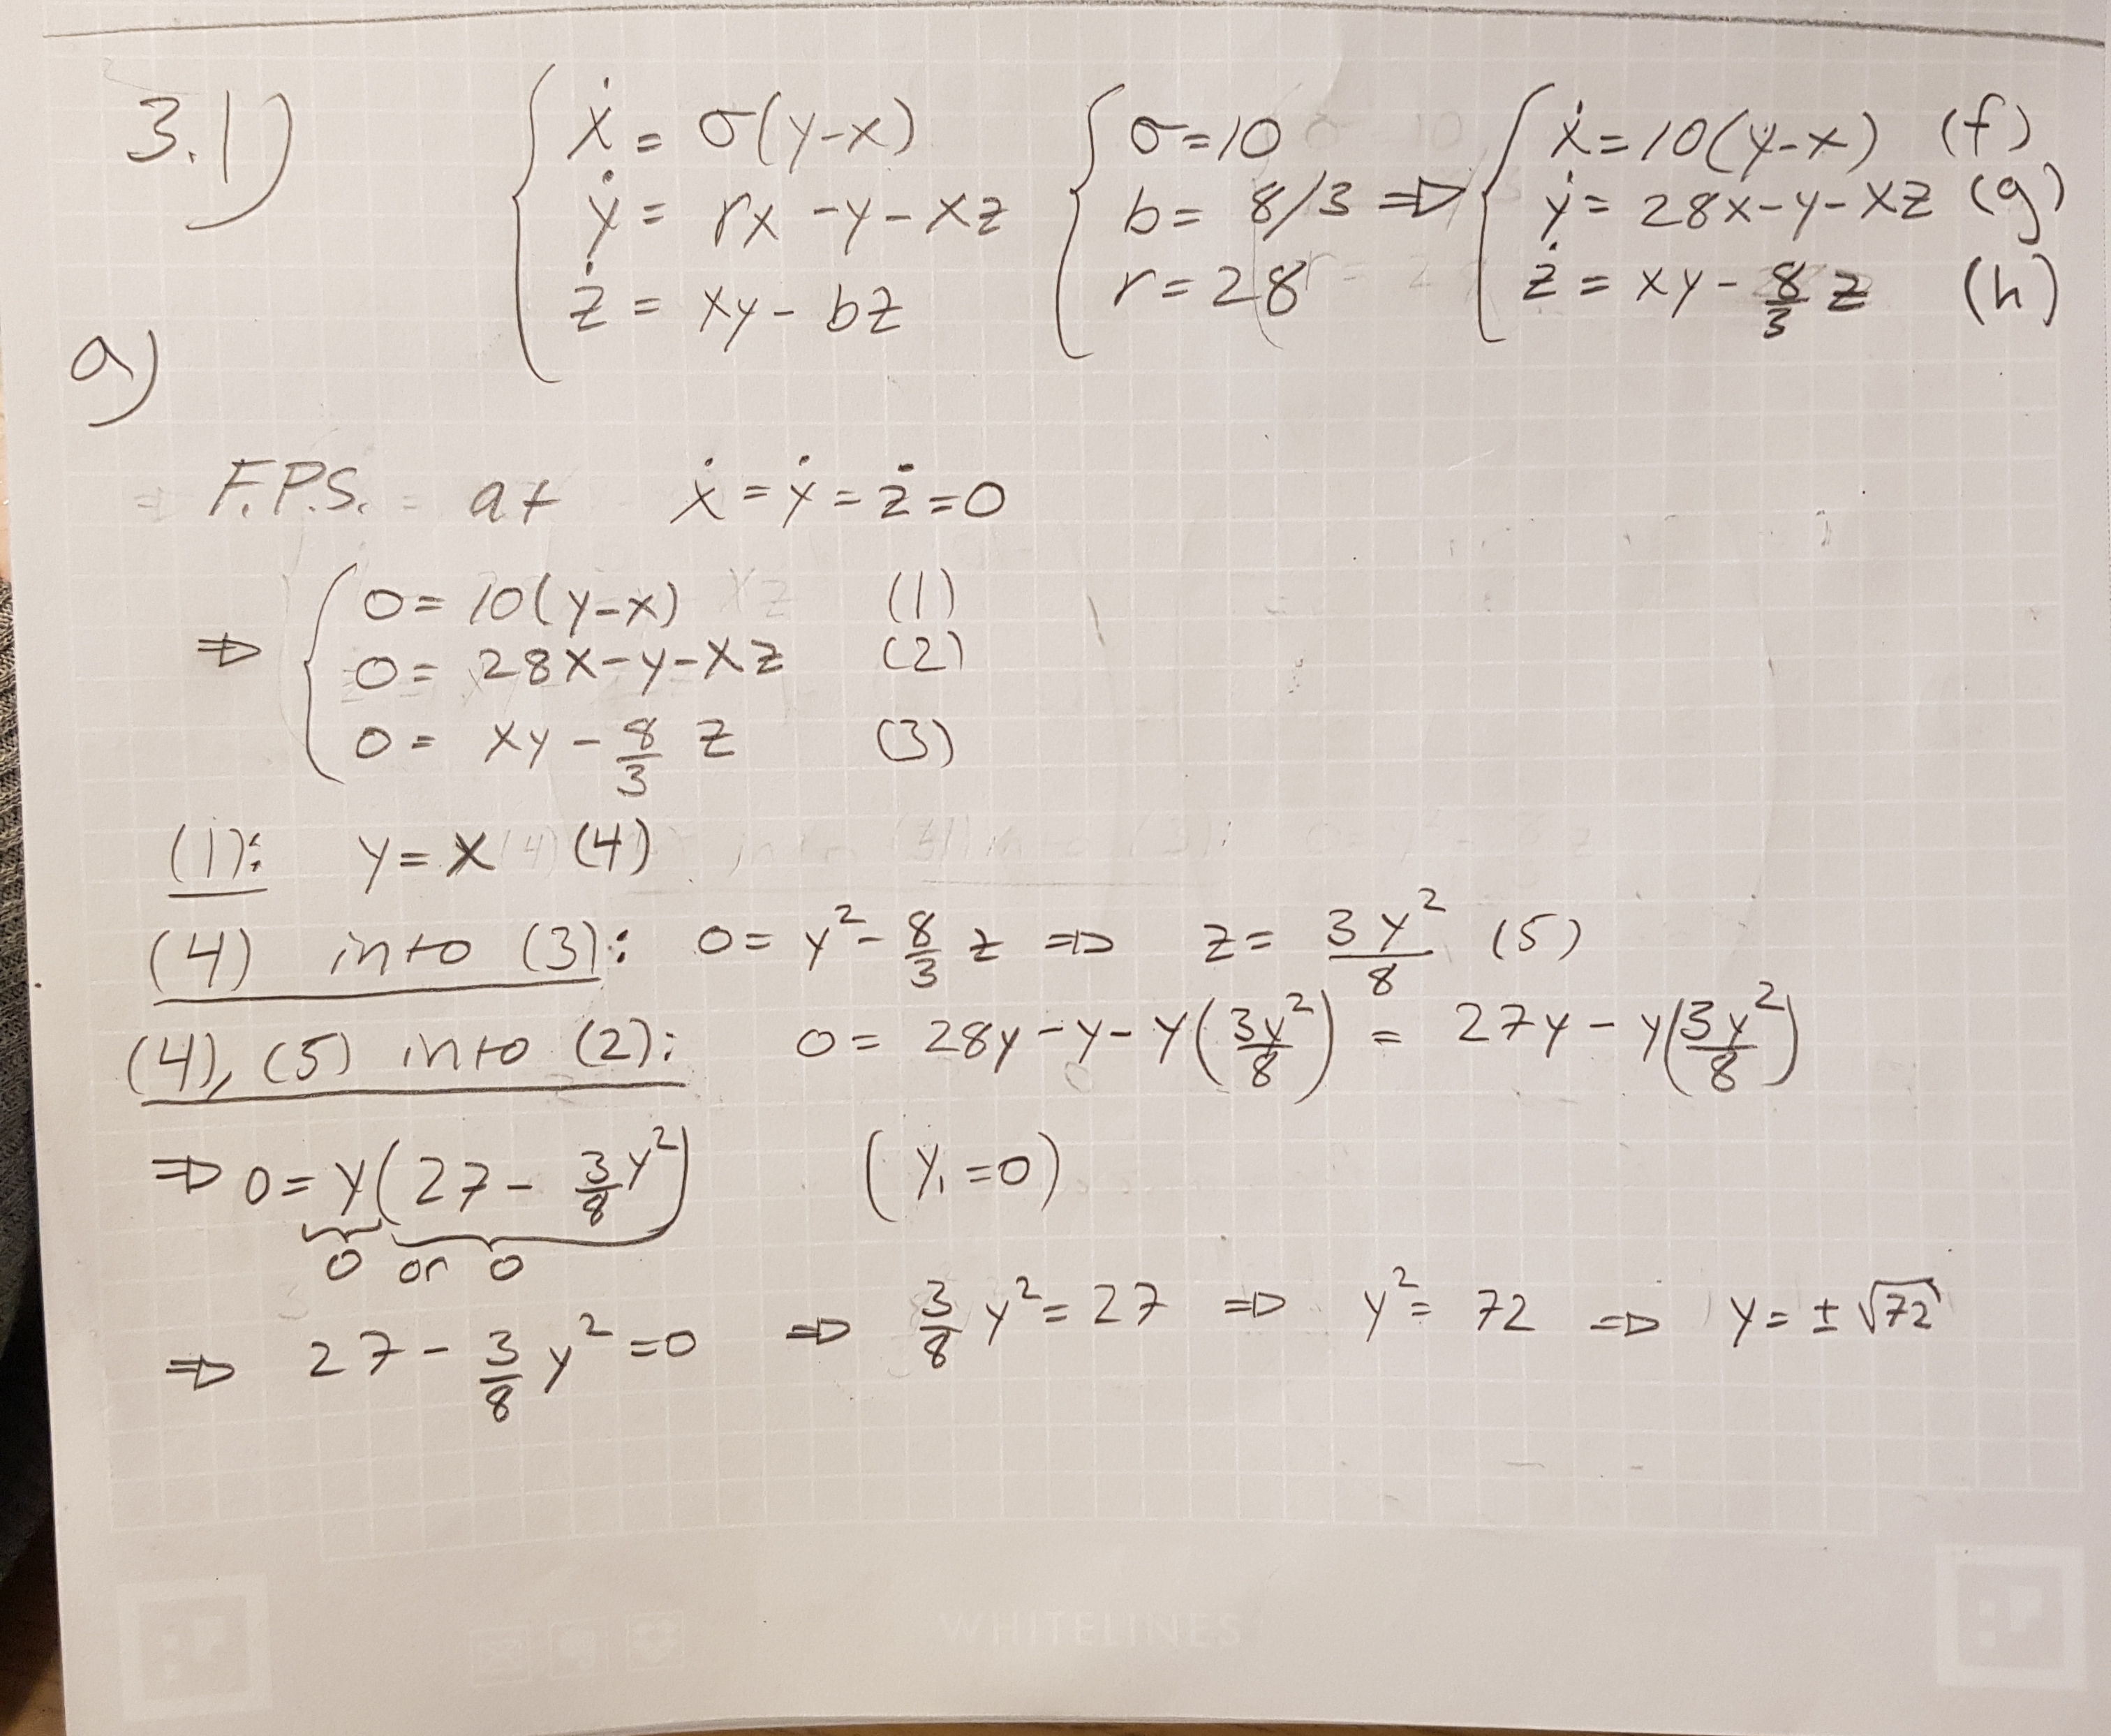 3.1) { ẋ = σ(y-x) { σ=10 ⇒ { ẋ=10(y-x) (f)
ẏ = rx-y-xz b= 8/3 ẏ= 28x-y-xz (g)
ż = xy-bz r=28 ż = xy-8/3 z (h)
a)
F.P.S. at ẋ=ẏ=ż=0
⇒ { 0= 10(y-x) (1)
0= 28x-y-xz (2)
0= xy-8/3 z (3)
(1): y=x (4)
(4) into (3): 0= y²-8/3 z ⇒ z= 3y²/8 (5)
(4), (5) into (2): 0= 28y-y-y(3y²/8) = 27y-y(3y²/8)
⇒ 0=y(27-3/8 y²) (y₁=0)
0 or 0
⇒ 27-3/8 y²=0 ⇒ 3/8 y²=27 ⇒ y²= 72 ⇒ y=±√72
WHITELINES